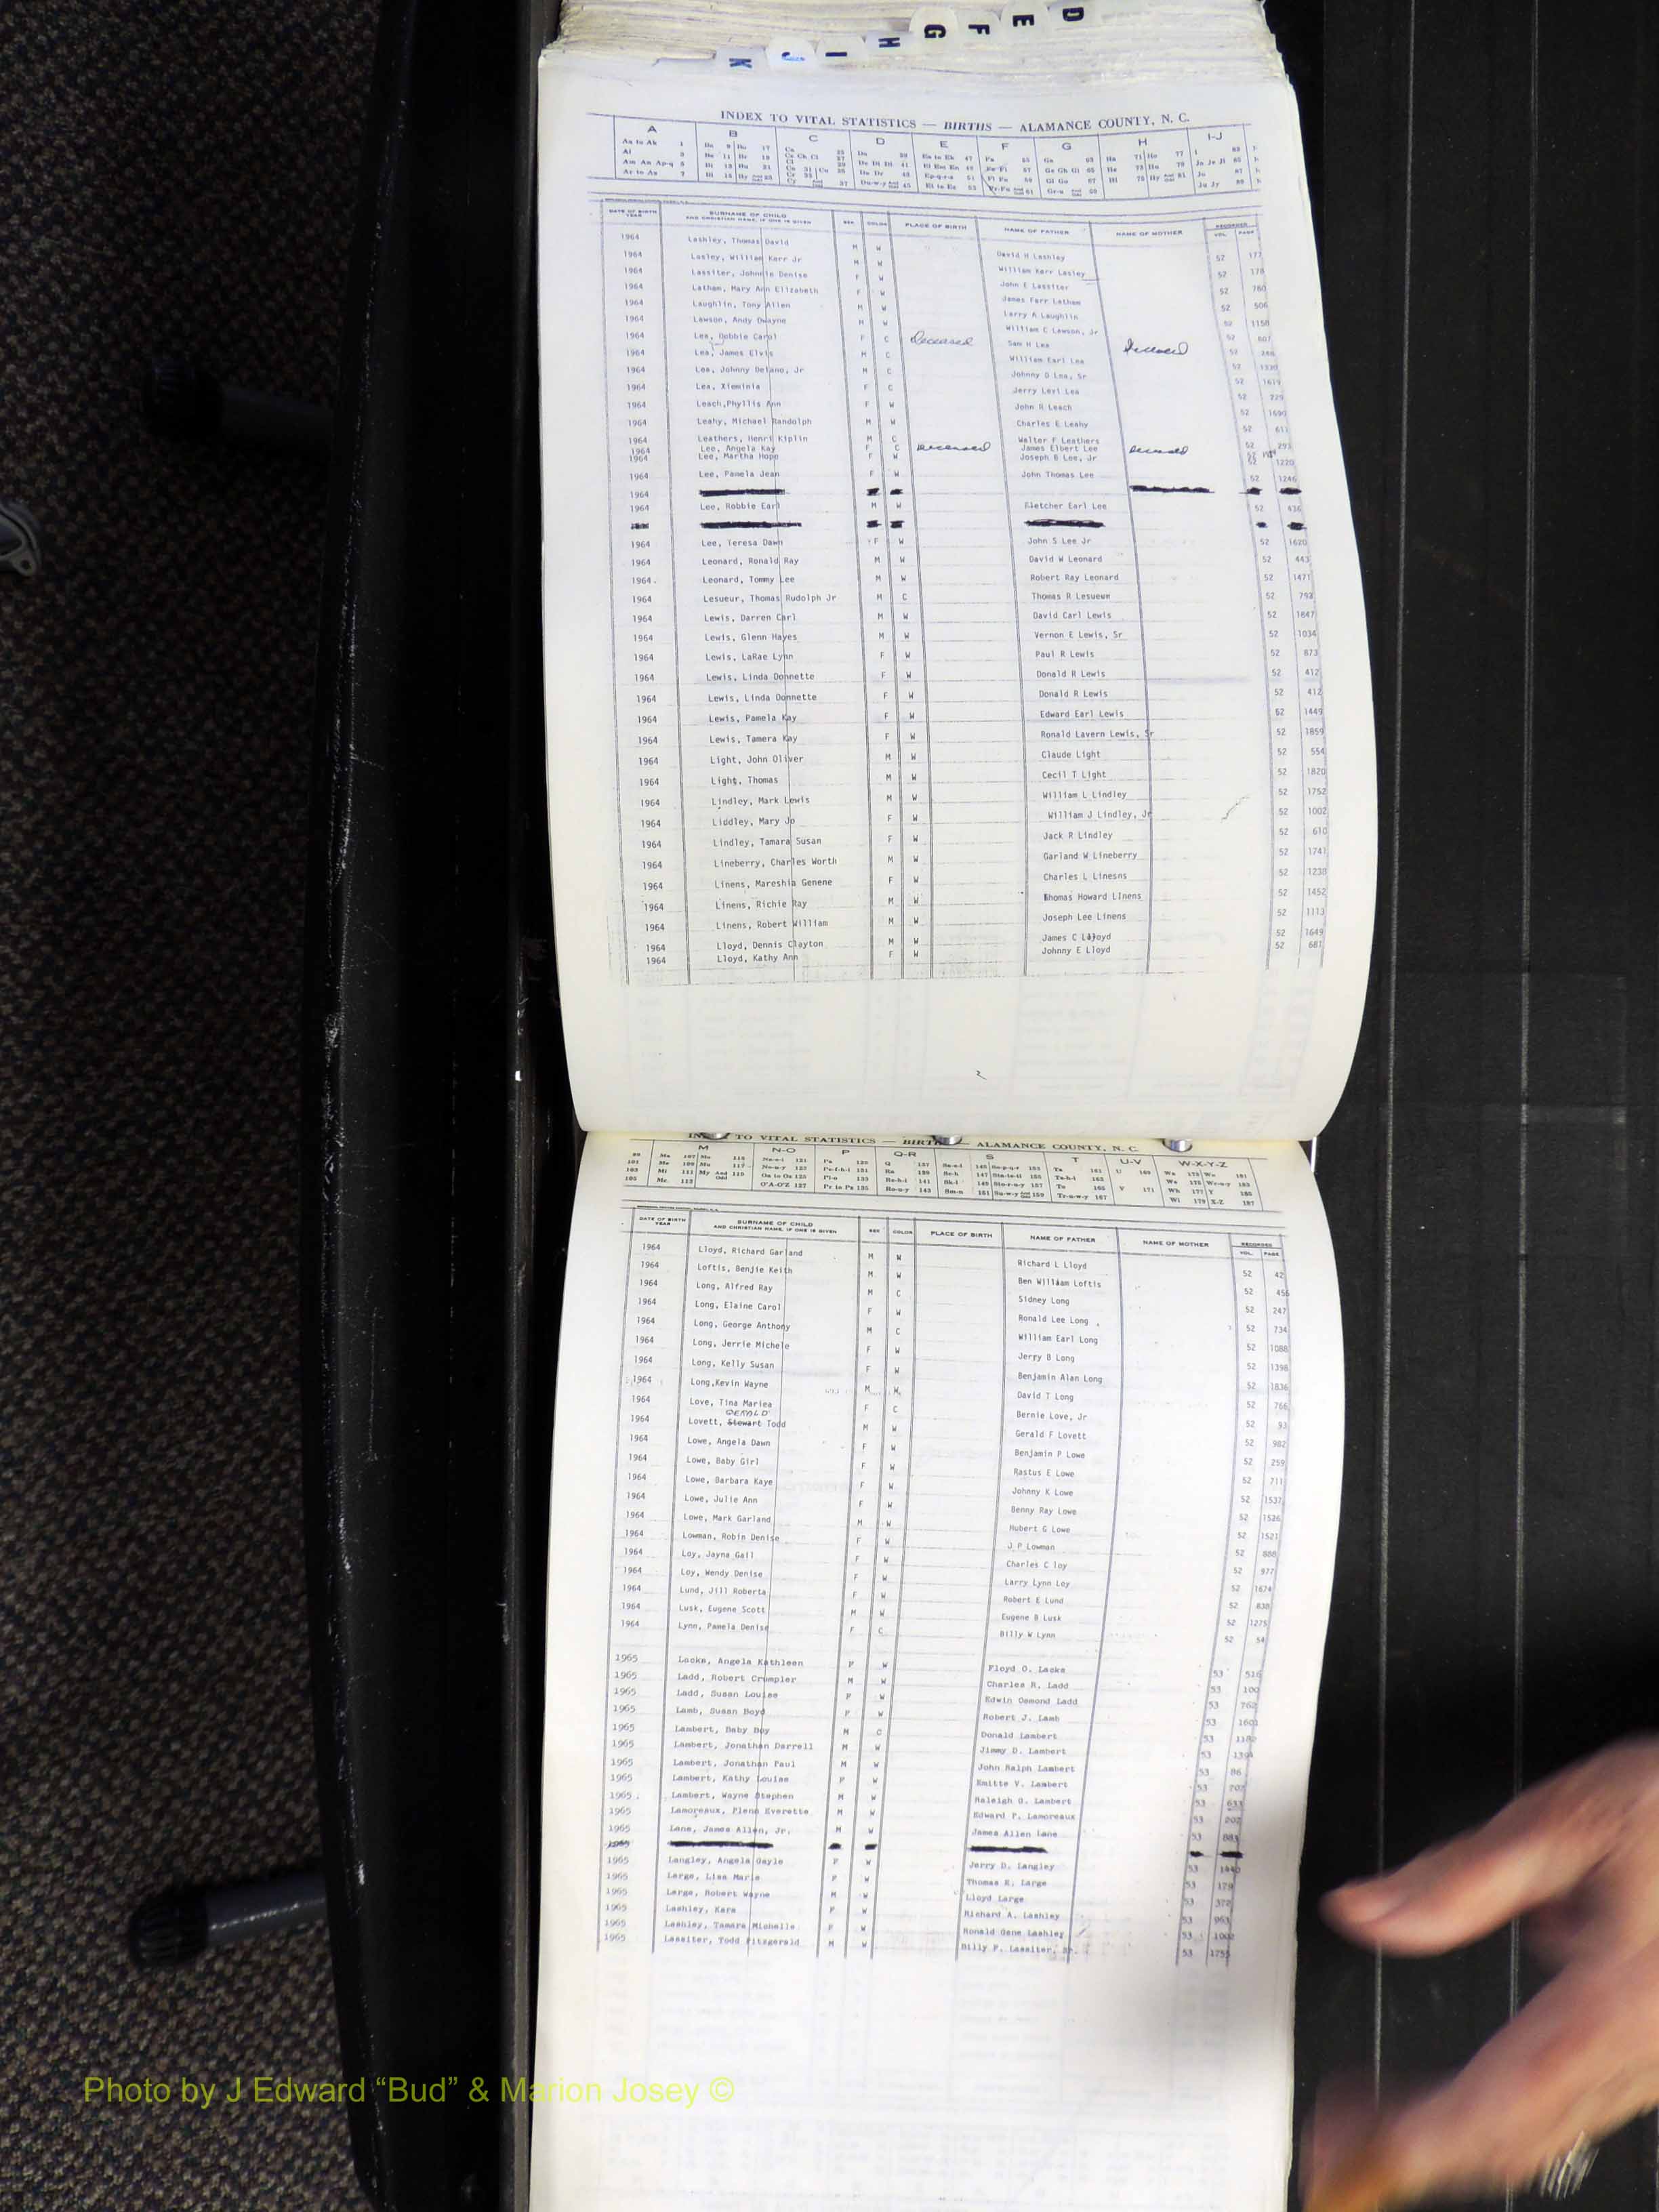 D
E
F
G
H
I
J
K
INDEX TO VITAL STATISTICS — BIRTHS — ALAMANCE COUNTY, N. C.
A B C D E F G H I-J
DATE OF BIRTH YEAR SURNAME OF CHILD AND CHRISTIAN NAME, IF ONE IS GIVEN SEX COLOR PLACE OF BIRTH NAME OF FATHER NAME OF MOTHER RECORDED VOL. PAGE
1964 Lashley, Thomas David M W David H Lashley 52 177
1964 Lasley, William Kerr Jr M W William Kerr Lasley 52 178
1964 Lassiter, Johnnie Denise F W John E Lassiter 52 760
1964 Latham, Mary Ann Elizabeth F W James Farr Latham 52 506
1964 Laughlin, Tony Allen M W Larry A Laughlin 52 1158
1964 Lawson, Andy Dwayne M W William C Lawson, Jr 52 607
1964 Lea, Debbie Carol F C Deceased Sam H Lea Deceased 52
1964 Lea, James Elvis M C William Earl Lea 52
1964 Lea, Johnny Delano, Jr M C Johnny D Lea, Sr 52 1619
1964 Lea, Xieminia F C Jerry Levi Lea 52
1964 Leach,Phyllis Ann F W John R Leach 52 1690
1964 Leahy, Michael Randolph M W Charles E Leahy 52
1964 Leathers, Henri Kiplin M C Walter F Leathers 52 293
1964 Lee, Angela Kay F C Deceased James Elbert Lee Deceased 52
1964 Lee, Martha Hope F W Joseph B Lee, Jr 52 1220
1964 Lee, Pamela Jean F W John Thomas Lee 52 1246
1964
1964 Lee, Robbie Earl M W Fletcher Earl Lee 52 436
1964 Lee, Teresa Dawn F W John S Lee Jr 52 1620
1964 Leonard, Ronald Ray M W David W Leonard 52 443
1964 Leonard, Tommy Lee M W Robert Ray Leonard 52 1471
1964 Lesueur, Thomas Rudolph Jr M C Thomas R Lesueur 52 793
1964 Lewis, Darren Carl M W David Carl Lewis 52 1847
1964 Lewis, Glenn Hayes M W Vernon E Lewis, Sr 52 1034
1964 Lewis, LaRae Lynn F W Paul R Lewis 52 873
1964 Lewis, Linda Donnette F W Donald R Lewis 52 412
1964 Lewis, Linda Donnette F W Donald R Lewis 52 412
1964 Lewis, Pamela Kay F W Edward Earl Lewis 52 1449
1964 Lewis, Tamera Kay F W Ronald Lavern Lewis, Sr 52 1859
1964 Light, John Oliver M W Claude Light 52 554
1964 Light, Thomas M W Cecil T Light 52 1820
1964 Lindley, Mark Lewis M W William L Lindley 52 1752
1964 Liddley, Mary Jo F W William J Lindley, Jr 52 1002
1964 Lindley, Tamara Susan F W Jack R Lindley 52 610
1964 Lineberry, Charles Worth M W Garland W Lineberry 52 1741
1964 Linens, Mareshia Genene F W Charles L Linesns 52 1238
1964 Linens, Richie Ray M W Thomas Howard LInens 52 1452
1964 Linens, Robert William M W Joseph Lee Linens 52 1113
1964 Lloyd, Dennis Clayton M W James C Lloyd 52 1649
1964 Lloyd, Kathy Ann F W Johnny E Lloyd 52 681
INDEX TO VITAL STATISTICS — BIRTHS — ALAMANCE COUNTY, N. C.
M N-O P Q-R S T U-V W-X-Y-Z
DATE OF BIRTH YEAR SURNAME OF CHILD AND CHRISTIAN NAME, IF ONE IS GIVEN SEX COLOR PLACE OF BIRTH NAME OF FATHER NAME OF MOTHER RECORDED VOL. PAGE
1964 Lloyd, Richard Garland M W Richard L Lloyd 52 42
1964 Loftis, Benjie Keith M W Ben William Loftis 52 456
1964 Long, Alfred Ray M C Sidney Long 52 247
1964 Long, Elaine Carol F W Ronald Lee Long 52 734
1964 Long, George Anthony M C William Earl Long 52 1088
1964 Long, Jerrie Michele F W Jerry B Long 52 1398
1964 Long, Kelly Susan F W Benjamin Alan Long 52 1836
1964 Long,Kevin Wayne M W David T Long 52 766
1964 Love, Tina Mariea F C Bernie Love, Jr 52 93
GERALD
1964 Lovett, Stewart Todd M W Gerald F Lovett 52 982
1964 Lowe, Angela Dawn F W Benjamin P Lowe 52 259
1964 Lowe, Baby Girl F W Rastus E Lowe 52 711
1964 Lowe, Barbara Kaye F W Johnny K Lowe 52 1537
1964 Lowe, Julie Ann F W Benny Ray Lowe 52 1526
1964 Lowe, Mark Garland M W Hubert G Lowe 52 1521
1964 Lowman, Robin Denise F W J P Lowman 52 888
1964 Loy, Jayna Gail F W Charles C loy 52 977
1964 Loy, Wendy Denise F W Larry Lynn Loy 52 1674
1964 Lund, Jill Roberta F W Robert E Lund 52 838
1964 Lusk, Eugene Scott M W Eugene B Lusk 52 1275
1964 Lynn, Pamela Denise F C Billy W Lynn 52 54
1965 Lacks, Angela Kathleen F W Floyd O. Lacks 53 516
1965 Ladd, Robert Crumpler M W Charles R. Ladd 53 100
1965 Ladd, Susan Louise F W Edwin Osmond Ladd 53 762
1965 Lamb, Susan Boyd F W Robert J. Lamb 53 1601
1965 Lambert, Baby Boy M C Donald Lambert 53 1182
1965 Lambert, Jonathan Darrell M W Jimmy D. Lambert 53 1394
1965 Lambert, Jonathan Paul M W John Ralph Lambert 53 86
1965 Lambert, Kathy Louise F W Emitte V. Lambert 53 707
1965 Lambert, Wayne Stephen M W Raleigh G. Lambert 53 633
1965 Lamoreaux, Plena Everette M W Edward P. Lamoreaux 53 202
1965 Lane, James Allen, Jr. M W James Allen Lane 53 883
1965
1965 Langley, Angela Gayle F W Jerry D. Langley 53 1440
1965 Large, Lisa Marie F W Thomas R. Large 53 179
1965 Large, Robert Wayne M W Lloyd Large 53 378
1965 Lashley, Kara F W Richard A. Lashley 53 963
1965 Lashley, Tamara Michelle F W Ronald Gene Lashley 53 1002
1965 Lassiter, Todd Fitzgerald M W Billy F. Lassiter, Sr. 53 1755
Photo by J Edward “Bud” & Marion Josey ©